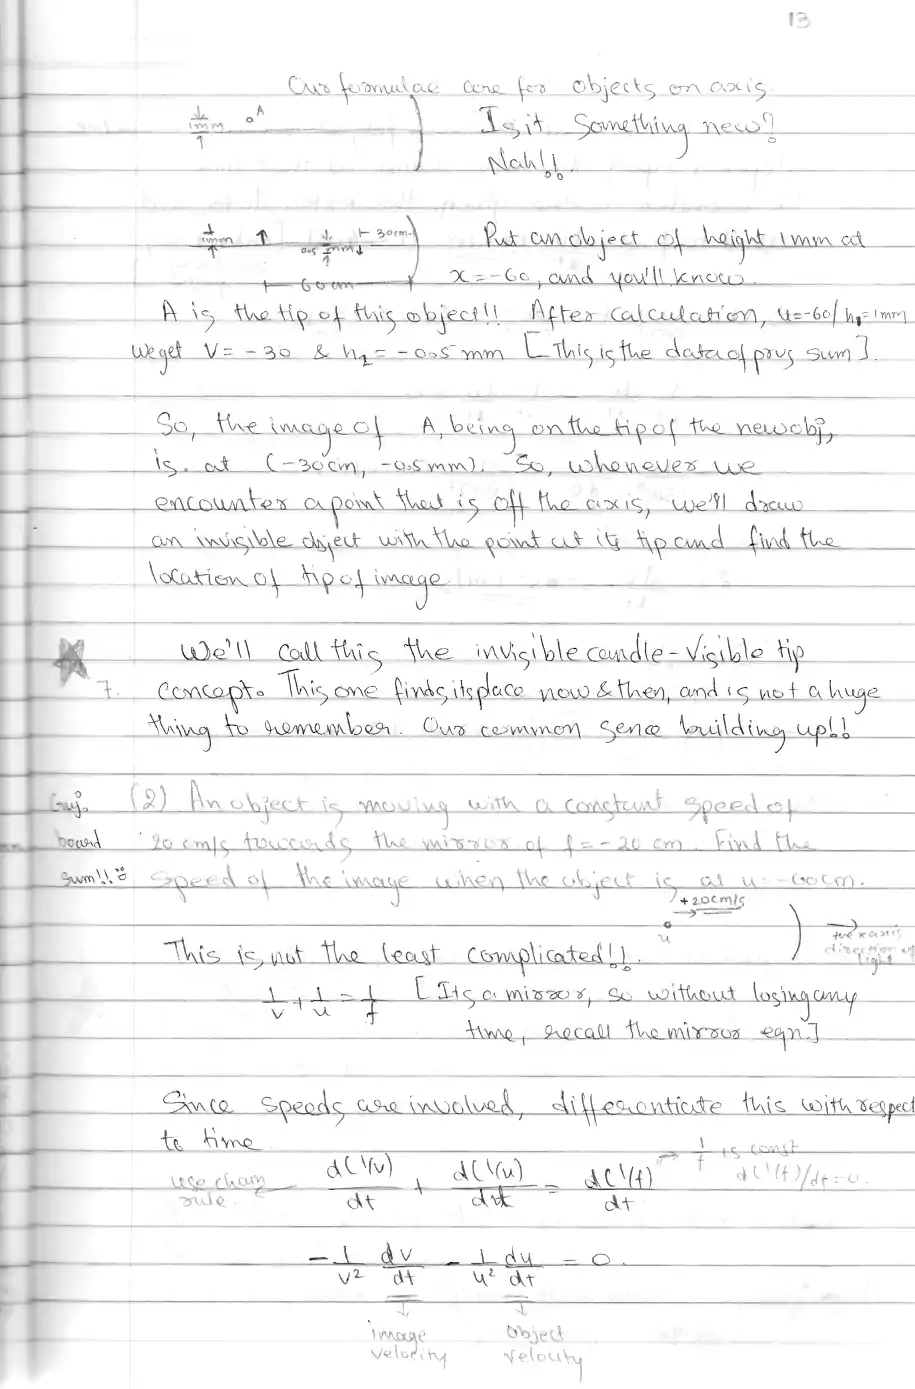 13
Our formulae are for objects on axis.
1mm A Is it something new?
Nah!!
1mm 0.5 mm 30cm Put an object of height 1mm at
60cm x = -60, and you'll know.
A is the tip of this object!! After calculation, u=-60/ h₁=1mm
We get V = -30 & h₂ = -0.5 mm [This is the data of prvs sum].
So, the image of A, being on the tip of the new obj,
is at (-30cm, -0.5mm). So, whenever we
encounter a point that is off the axis, we'll draw
an invisible object with the point at its tip and find the
location of tip of image.
We'll call this the invisible candle-Visible tip
7. concept. This one finds its place now & then, and is not a huge
thing to remember. Our common sence building up!!
Guj. (2) An object is moving with a constant speed of
board 20 cm/s towards the mirror of f = -20 cm. Find the
sum!! speed of the image when the object is at u = -60cm.
+20cm/s
u +ve x axis
direction of
light
This is not the least complicated!!.
1/v + 1/u = 1/f [Its a mirror, so without losing any
time, recall the mirror eqn.]
Since speeds are involved, differentiate this with respect
to time
1/f is const
d(1/f)/dt = 0.
use chain rule. d(1/v)/dt + d(1/u)/dt = d(1/f)/dt
-1/v² dv/dt - 1/u² du/dt = 0.
image Object
velocity velocity